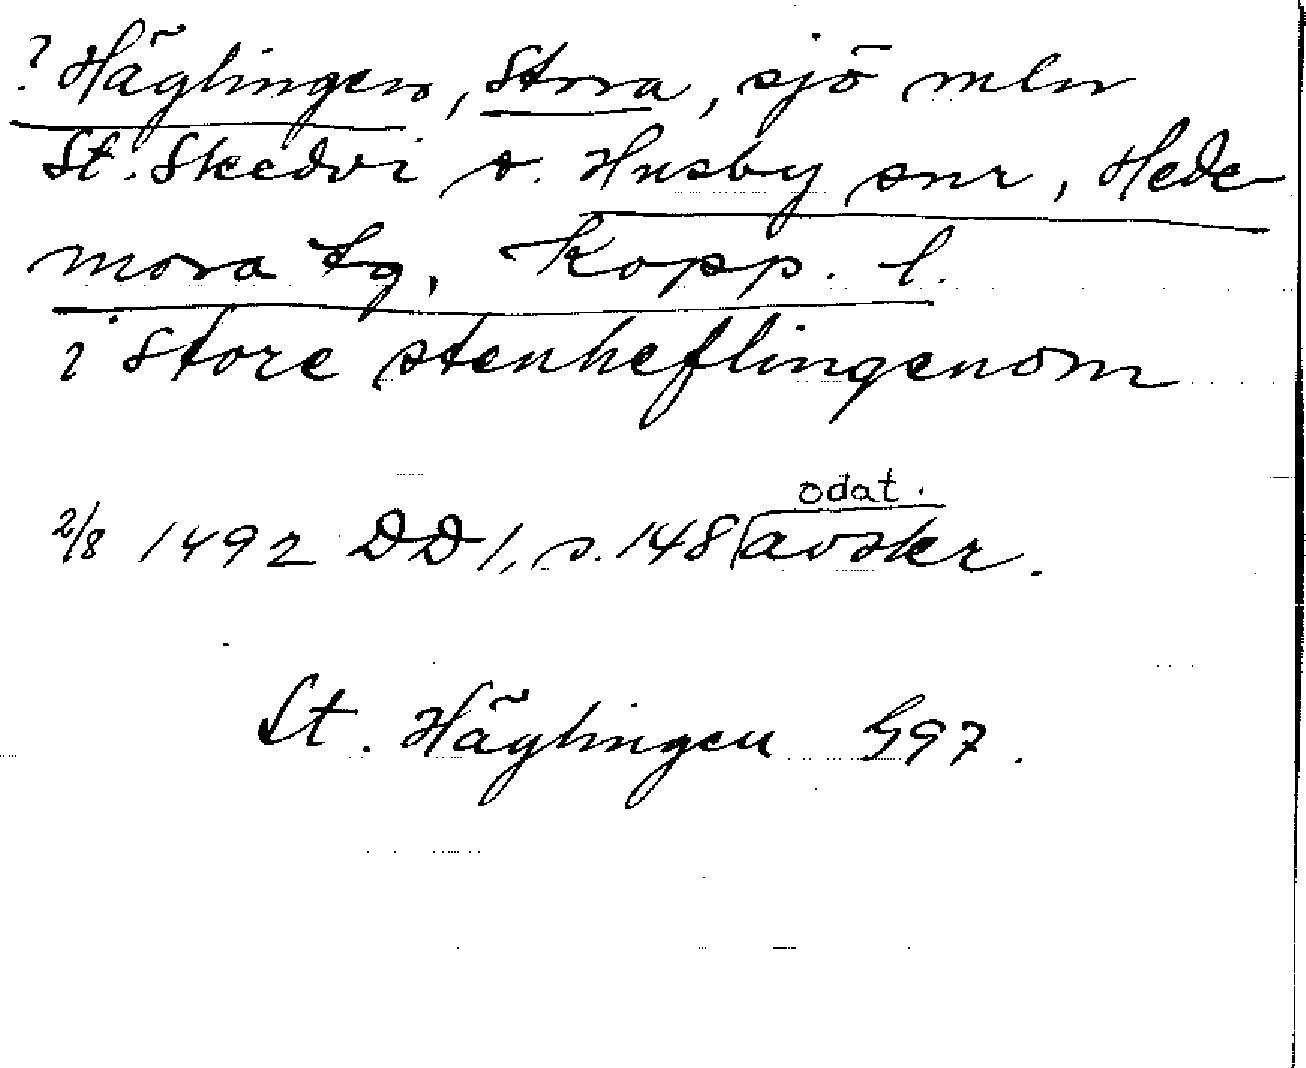 ? Häglingen, Stora, sjö mln
St. Skedvi o. Husby snr, Hede
mora tg, Kopp. l.
i Store stenheflingenom
odat.
2/8 1492 DD 1, s. 148 avskr.
St. Häglingen G97.